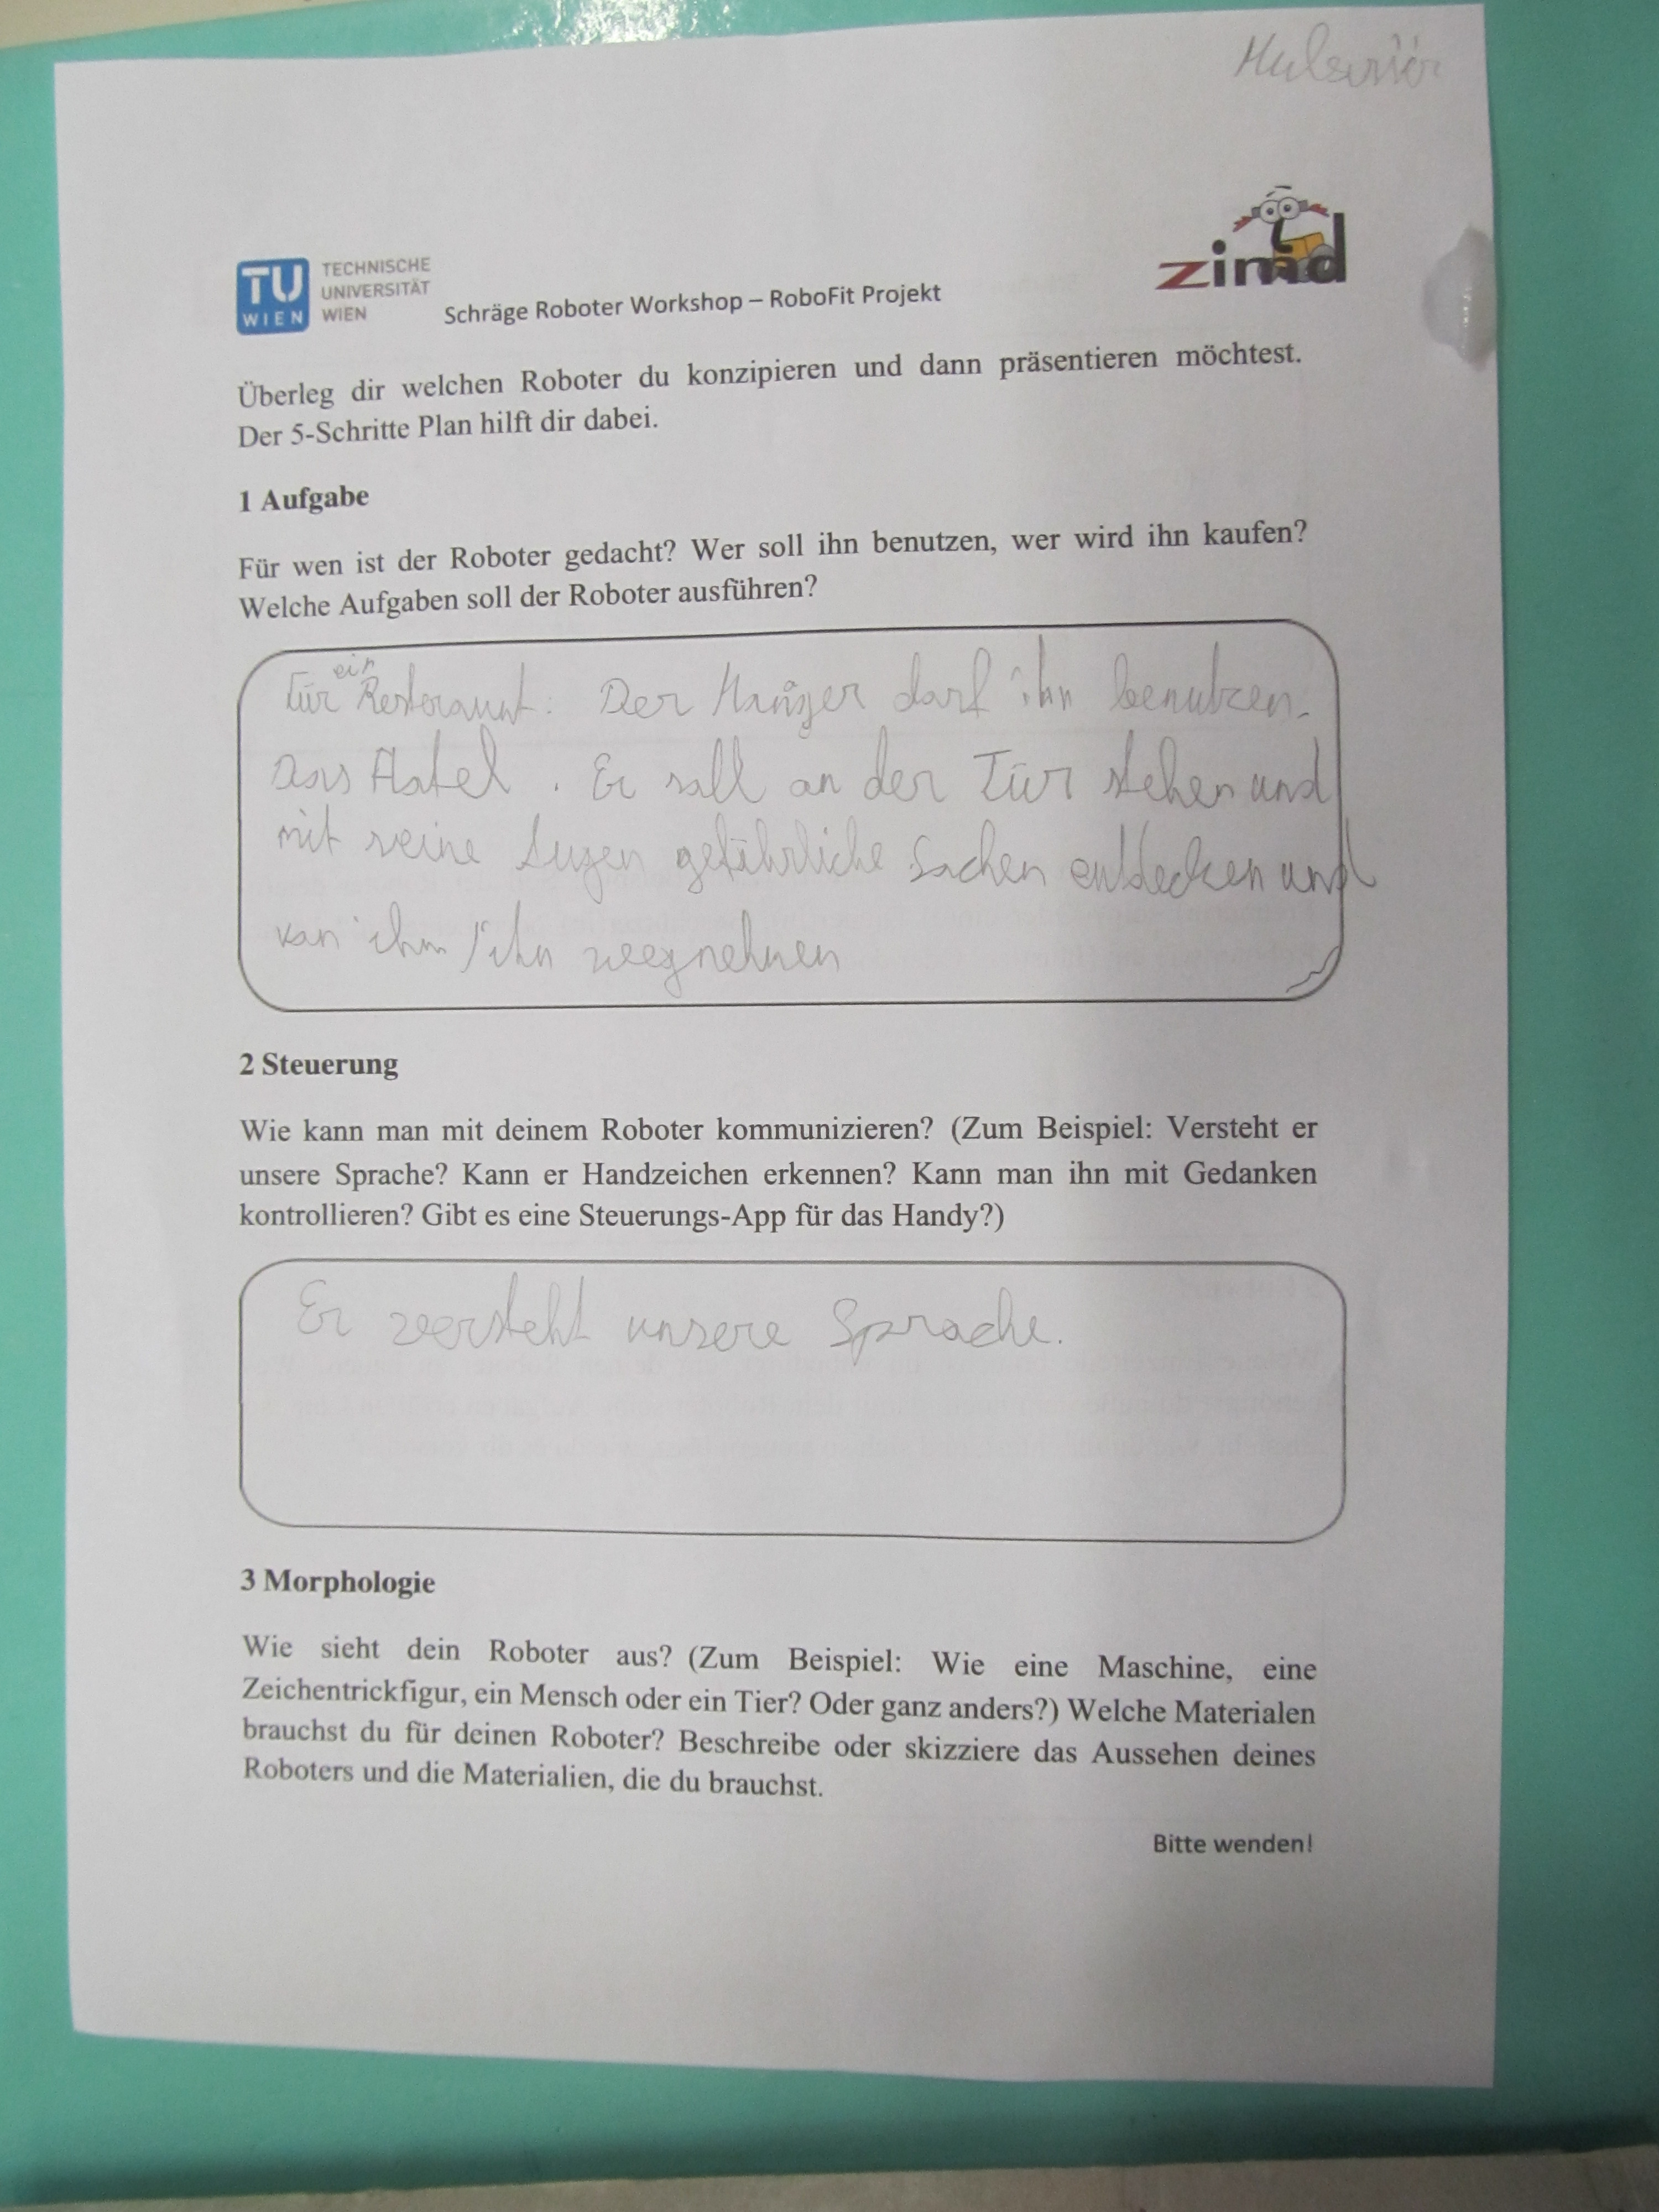 TU WIEN
TECHNISCHE
UNIVERSITÄT
WIEN
zimd
Schräge Roboter Workshop – RoboFit Projekt
Überleg dir welchen Roboter du konzipieren und dann präsentieren möchtest.
Der 5-Schritte Plan hilft dir dabei.
1 Aufgabe
Für wen ist der Roboter gedacht? Wer soll ihn benutzen, wer wird ihn kaufen?
Welche Aufgaben soll der Roboter ausführen?
Für ein Resteraunt: Der darf ihn benutzen.
Das Hotel. Er soll an der Tür stehen und
mit seine Augen gefährliche Sachen entdecken und
kan ihm/ihn weegnehmen
2 Steuerung
Wie kann man mit deinem Roboter kommunizieren? (Zum Beispiel: Versteht er
unsere Sprache? Kann er Handzeichen erkennen? Kann man ihn mit Gedanken
kontrollieren? Gibt es eine Steuerungs-App für das Handy?)
Er versteht unsere Sprache.
3 Morphologie
Wie sieht dein Roboter aus? (Zum Beispiel: Wie eine Maschine, eine
Zeichentrickfigur, ein Mensch oder ein Tier? Oder ganz anders?) Welche Materialen
brauchst du für deinen Roboter? Beschreibe oder skizziere das Aussehen deines
Roboters und die Materialien, die du brauchst.
Bitte wenden!